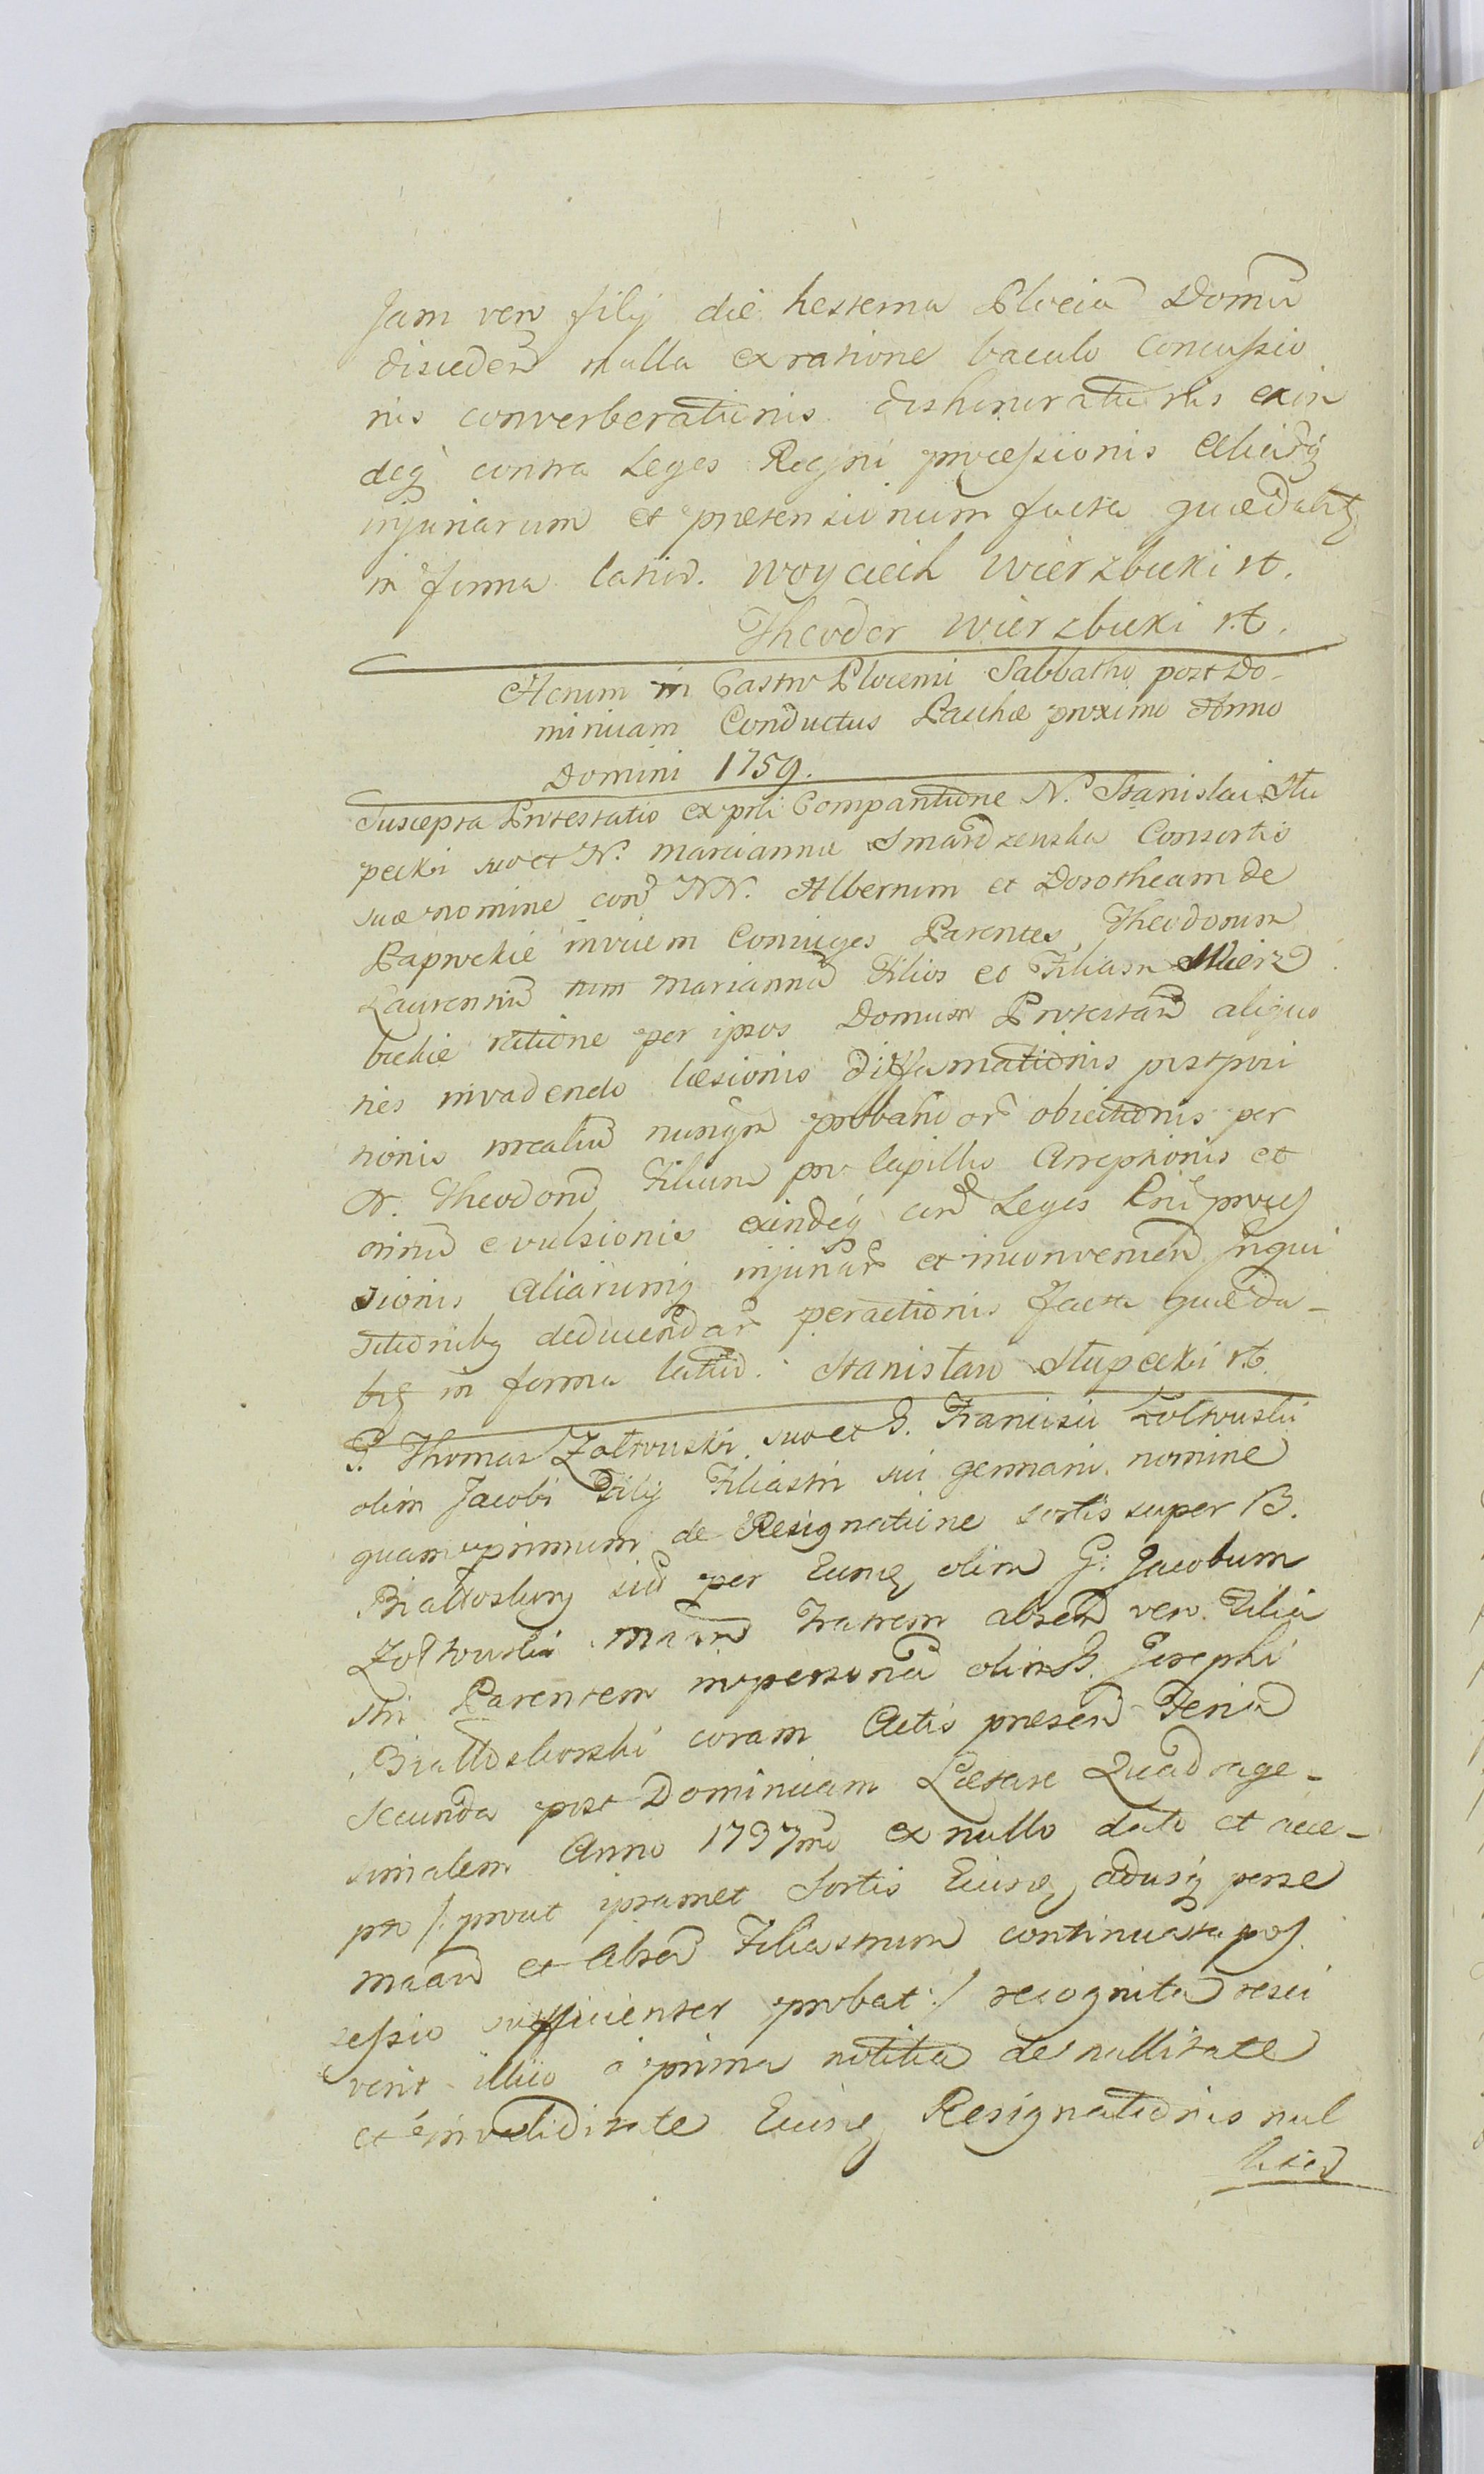 Jam vero filij die hesterna Plociâ Domũ
disceden̄ nulla ex ratione baculo concussio
nis converberationis dishonorationis exin
deq̃ contra Leges Regni processionis aliarq̃
injuriarum et praetensionum facta quaedabitz
in forma latior. Woyciech Wierzbicki rt.
Theodor Wierzbicki rt.
Actum in Castro Plocensi Sabbatho post Do-
minicam Conductus Paschae proximo Anno
Domini 1759.
Suscepta Protestatio ex prli Comparitione N. Stanislai Stu
pecki suo et N. Marciannae Smardzenska Consortis
suae nomine con̄ NN. Albertum et Dorotheam de
Paprockie invicem Coniuges Parentes, Theodorum
Laurentiũ tum Mariannã Filios et Filiam Wierz
bickie ratione per ipsos Domum Protestan̄ aliquo
ties invadendo laesionis diffamationis postposi
tionis mealiũ nunqm̄ probatior̄ obiectionis per
N. Theodorũ Filium pro capillis Arreptionis et
criniũ evulsionis exindeq̃ con̄ Leges Rni proces
sionis Aliarumq̃ injuriar̄ et inconvenien̄ Inqui
sitionibg deducendar̄ peractionis facta quaeda-
bitz in forma latiõr. Stanisław Stupecki rt.
G. Thomas Zołtowski suo et G. Francisci Zołtowski
olim Jacobi Filij Filiastri sui germani nomine
quamprimum de Resignatione sortis super B.
Białłoskury sic̃ per Eundq̃ olim G. Jacobum
Zołtowski man̄ Fratrem absen̄ vero Filia
stri Parentem in personã olim G. Josephi
Białłoskorski coram Actis praesen̄ Feriâ
Secunda post Dominicam Laetare Quadrage-
simalem Anno 1737mo ex nullo dato et acce-
pto /: prout ipsamet Sortis Eiusdq̃ adusq̃ per se
man̄ et absen̄ Filiastrum continuata pos
sessio sufficienter probat :/ recognitâ resci
verit illico â prima notitia de nullitate
et invaliditate Eiusdq̃ Resignationis nul
liter̄